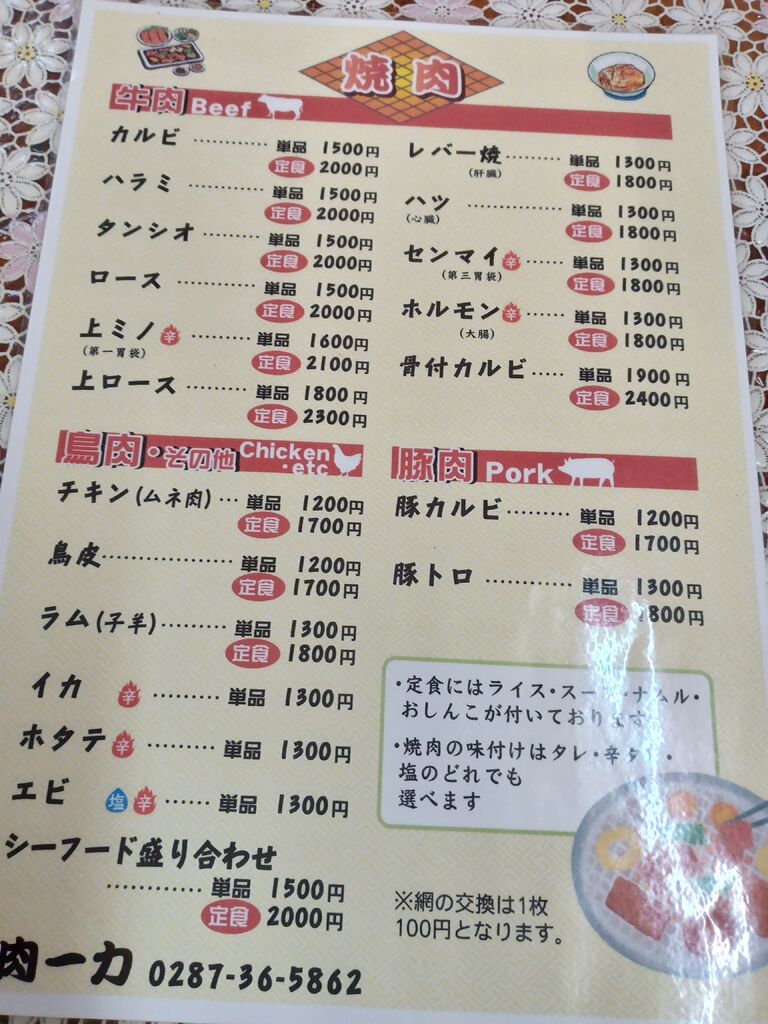 焼肉
牛肉 Beef
カルビ ………… 単品 1500円
定食 2000円
ハラミ ………… 単品 1500円
定食 2000円
タンシオ ……… 単品 1500円
定食 2000円
ロース ………… 単品 1500円
定食 2000円
上ミノ 辛 ……… 単品 1600円
(第一胃袋) 定食 2100円
上ロース ……… 単品 1800円
定食 2300円
レバー焼 ……… 単品 1300円
(肝臓) 定食 1800円
ハツ ………… 単品 1300円
(心臓) 定食 1800円
センマイ 辛 …… 単品 1300円
(第三胃袋) 定食 1800円
ホルモン 辛 …… 単品 1300円
(大腸) 定食 1800円
骨付カルビ …… 単品 1900円
定食 2400円
鳥肉・その他 Chicken
・etc
チキン(ムネ肉) … 単品 1200円
定食 1700円
鳥皮 ……………… 単品 1200円
定食 1700円
ラム(子羊) ……… 単品 1300円
定食 1800円
イカ 辛 ……… 単品 1300円
ホタテ 辛 ……… 単品 1300円
エビ 塩 辛 …… 単品 1300円
シーフード盛り合わせ
………… 単品 1500円
定食 2000円
豚肉 Pork
豚カルビ ……… 単品 1200円
定食 1700円
豚トロ ………… 単品 1300円
定食 1800円
・定食にはライス・スープ・ナムル・
おしんこが付いております
・焼肉の味付けはタレ・辛タレ・
塩のどれでも
選べます
※網の交換は1枚
100円となります。
肉一力 0287-36-5862